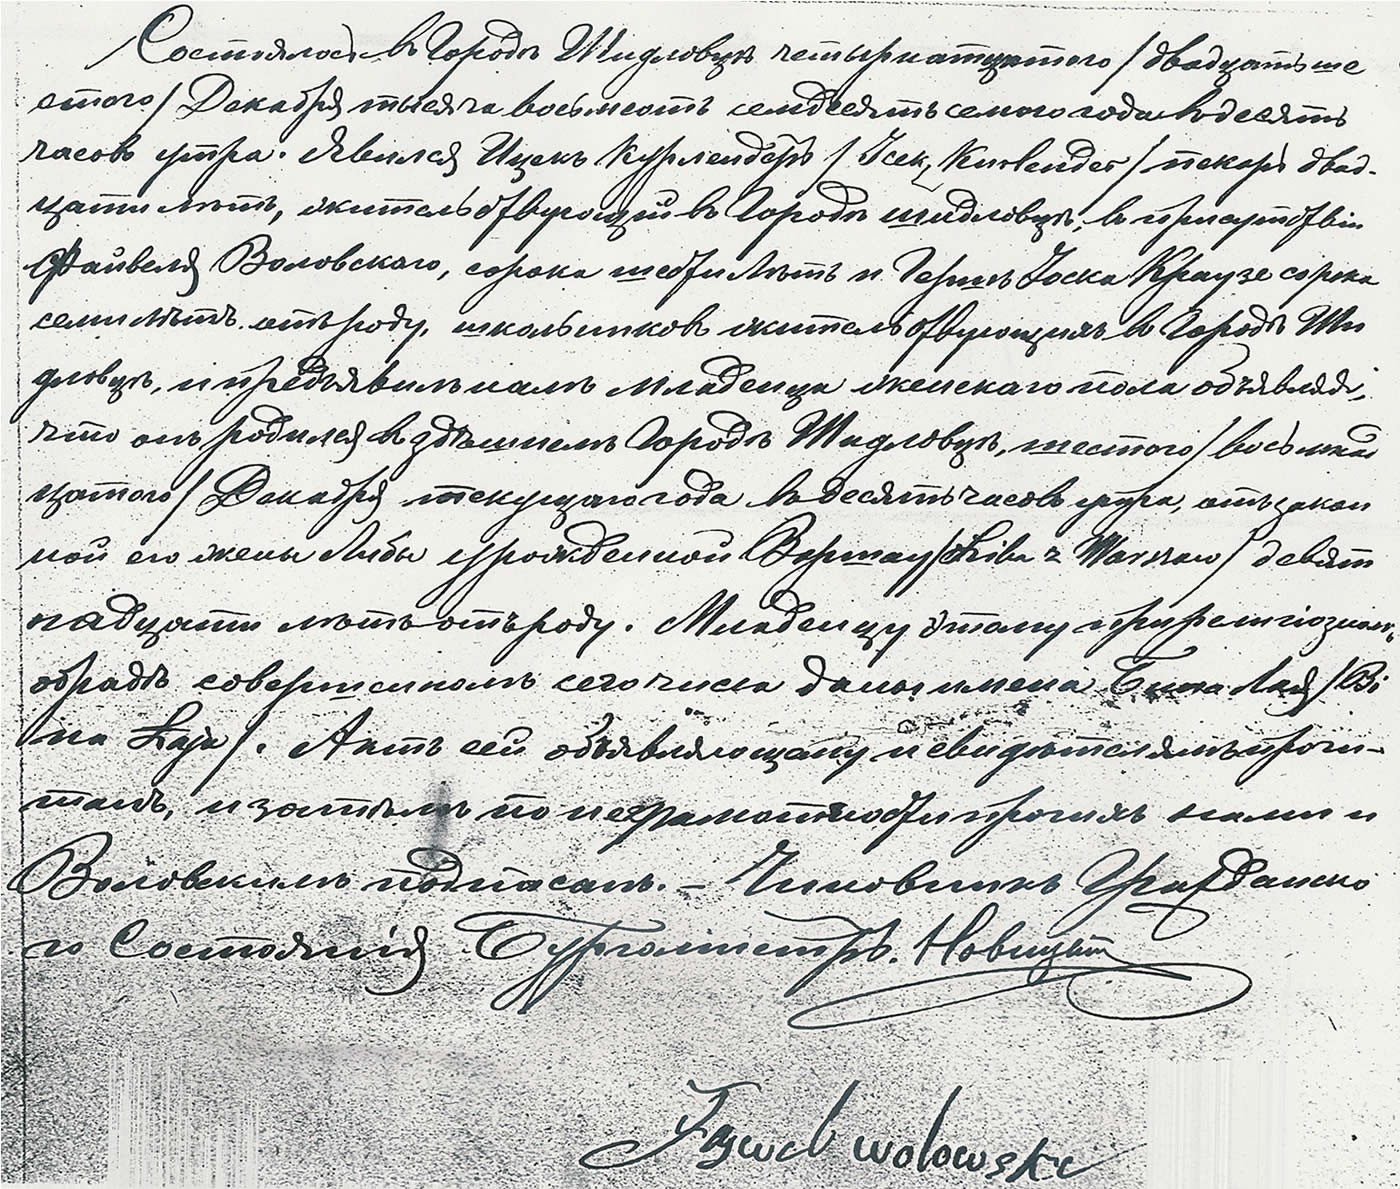 Состоялось в Городѣ Шидловцѣ четырнатцатого /двадцать ше
стого/ Декабря тысяча восьмсотъ семдесятъ семого года в десять
часовъ утра. Явился Ицекъ Курлендеръ /Icek Kurlender/ пекарь двад-
цати лѣтъ, жительствующій в Городѣ Шидловцѣ, в присутствіи
Файвеля Воловскаго, сорока шести лѣтъ и Герша Іоска Краузе сорока
семи лѣтъ отъ роду, школьниковъ жительствующихъ в Городѣ Ши
дловцѣ, и предъявилъ намъ младенца женскаго пола объявляя,
что онъ родился в здѣшнемъ Городѣ Шидловцѣ, шестого /восьмнад
цатого/ Декабря текущаго года в десять часовъ утра, отъ закон
ной его жены Либы урожденной Воршау /Liba z Warszaw/ девят
надцати лѣтъ отъ роду. Младенцу этому при религіозномъ
обрядѣ совершенномъ сего числа даны имена Бина Лая /Bi
na Łaja/. Актъ сей объявляющему и свидѣтелямъ прочи-
танъ, и затѣмъ по неграмотности прочихъ нами и
Воловскимъ подписанъ. – Чиновникъ Гражданско
го Состоянія Бургомистръ. Новицкій
Faywel wolowski